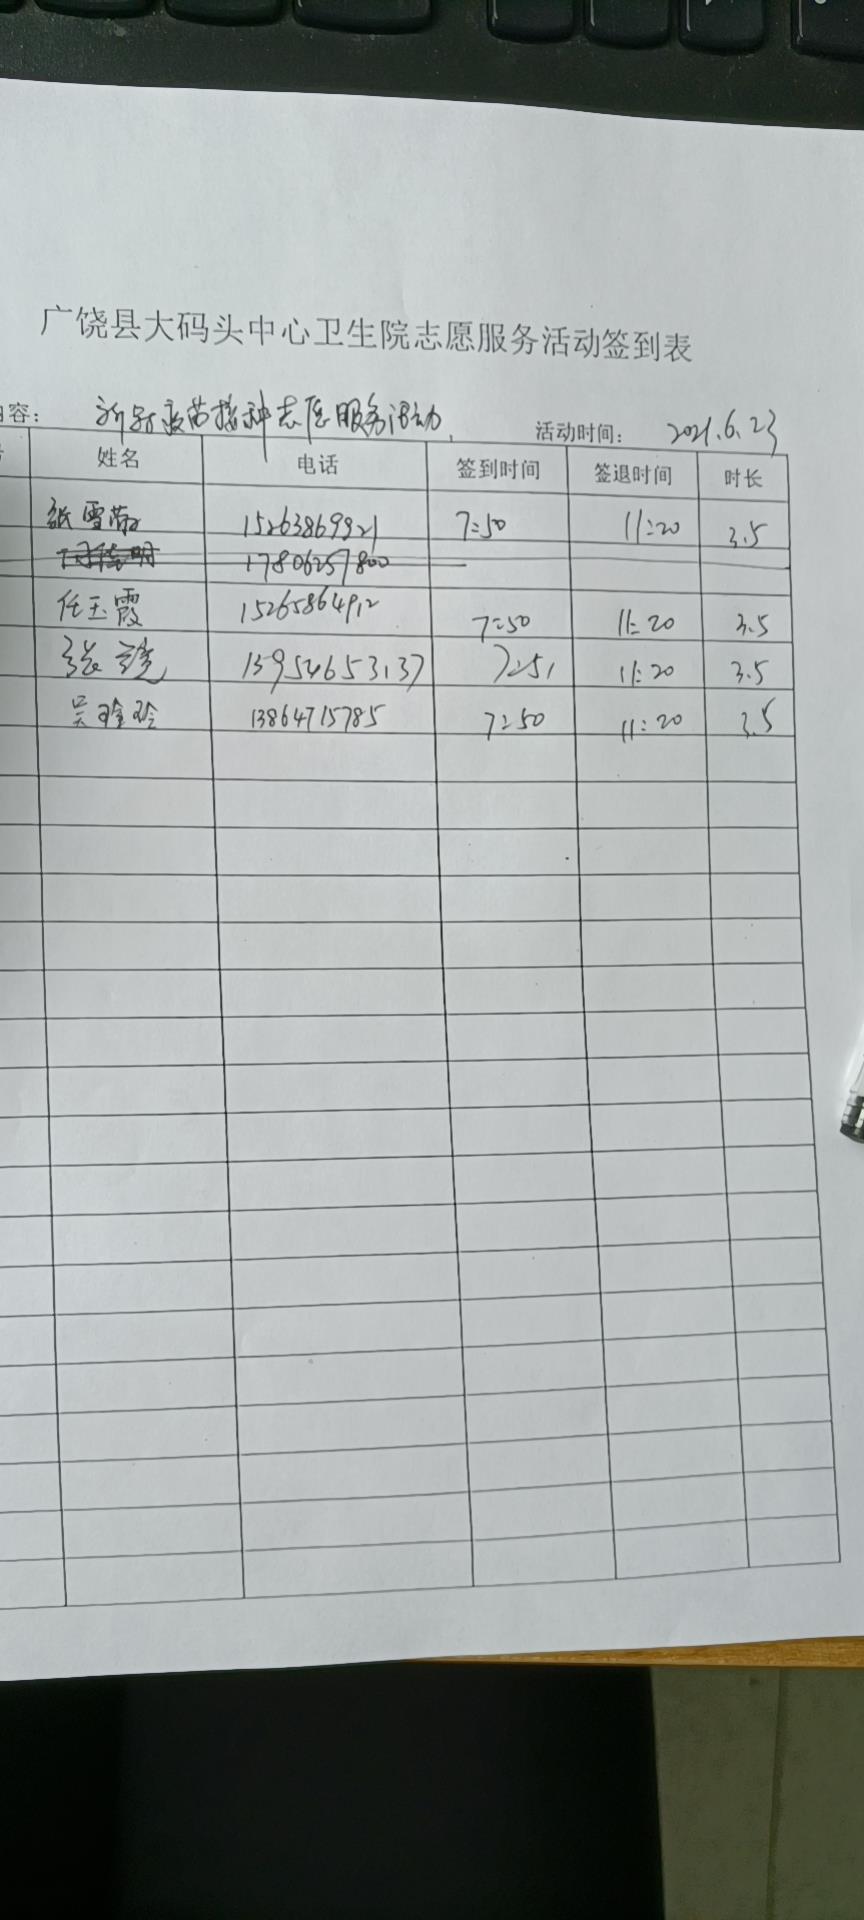 广饶县大码头中心卫生院志愿服务活动签到表
内容： 新冠疫苗接种志愿服务活动 活动时间： 2021.6.23
姓名 电话 签到时间 签退时间 时长
15263869921 7:50 11:20 3.5
17806257800
任玉霞 15265864912 7:50 11:20 3.5
张 13954653137 7:51 11:20 3.5
吴玲玲 13864715785 7:50 11:20 3.5